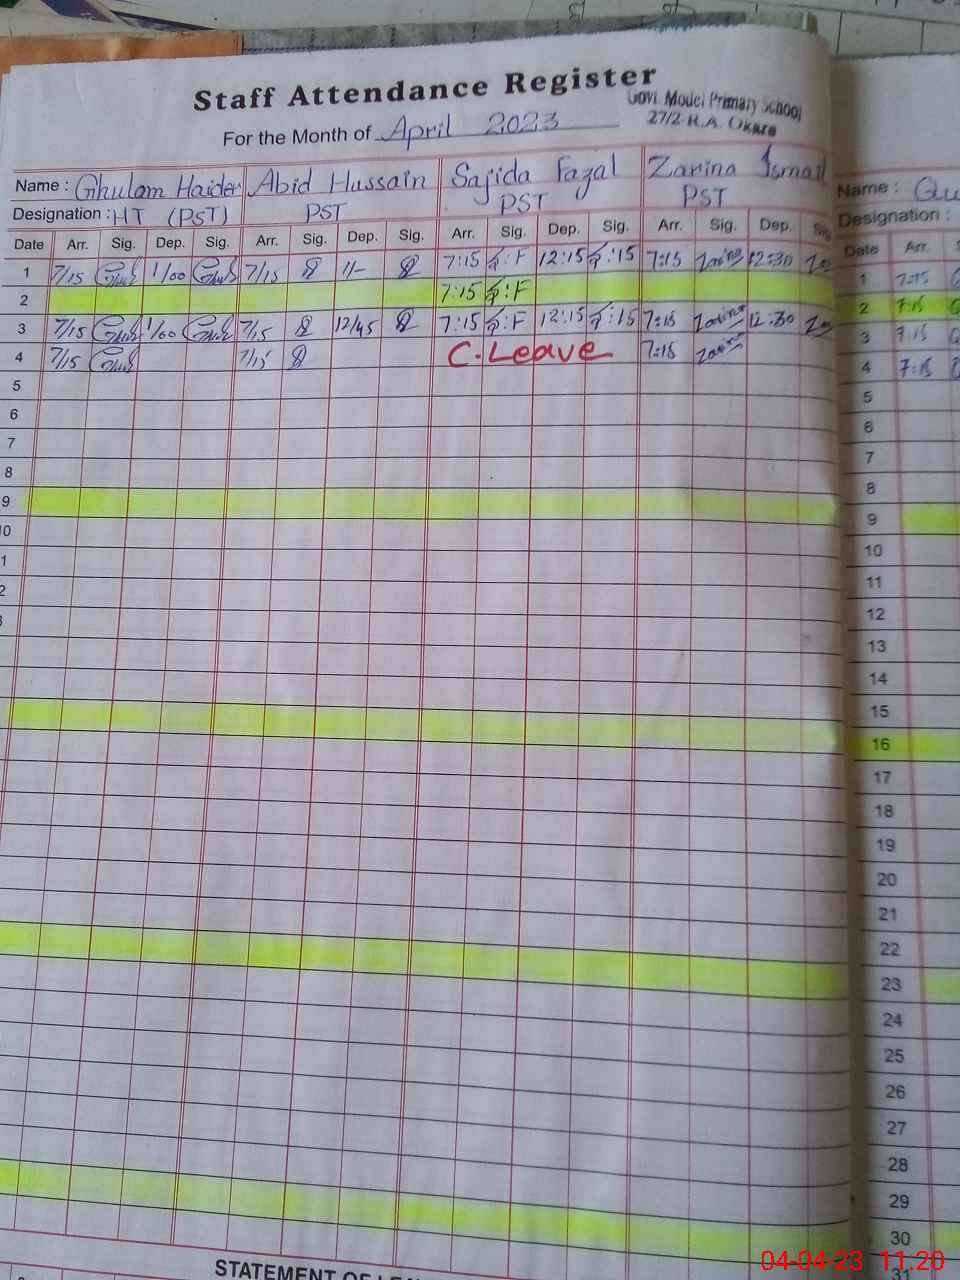 Staff Attendance Register
Govt. Model Primary School
27/2-R.A. Okara
For the Month of April 2023
Name : Ghulam Haider Abid Hussain Sajida Fazal Zarina Ismail
Designation : HT (PST) PST PST PST
Date Arr. Sig. Dep. Sig. Arr. Sig. Dep. Sig. Arr. Sig. Dep. Sig. Arr. Sig. Dep. Sig
1 7/15 1/00 7/15 1/- 7:15 12:15 7:15 Zarina 12:30
2 7:15
3 7/15 1/00 7/15 12/45 7:15 12:15 7:15 Zarina 12:30
4 7/15 7/15 C. Leave 7:15 Zarina
5
6
7
8
9
STATEMENT OF
Name :
Designation :
Date Arr.
1 7:15
2 7:15
3 7:15
4 7:15
5
6
7
8
9
10
11
12
13
14
15
16
17
18
19
20
21
22
23
24
25
26
27
28
29
30
31
04-04-23 11:20